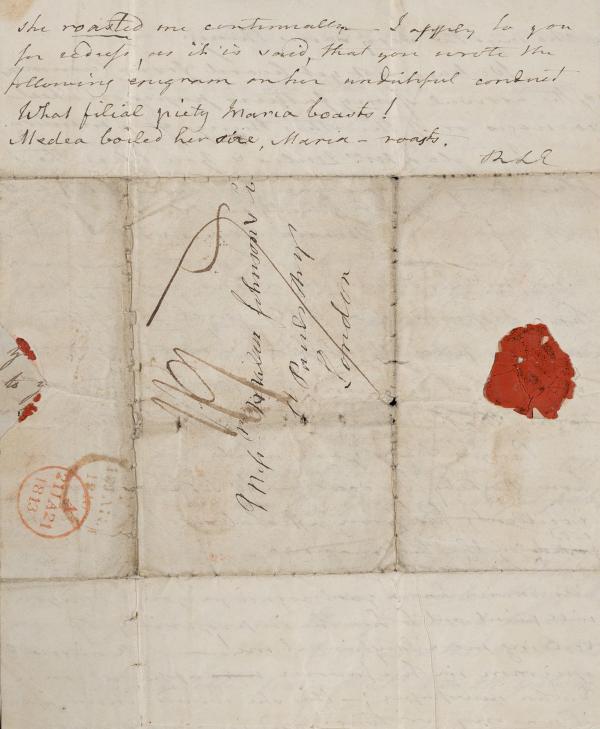 she roasted me continually – I apply to you
for redress, as it is said, that you wrote the
following epigram on her undutiful conduct
What filial piety Maria boasts!
Medea boiled her sire, Maria – roasts.
RLE
Johnson
St Pauls
London
to
21 JA 21
1813